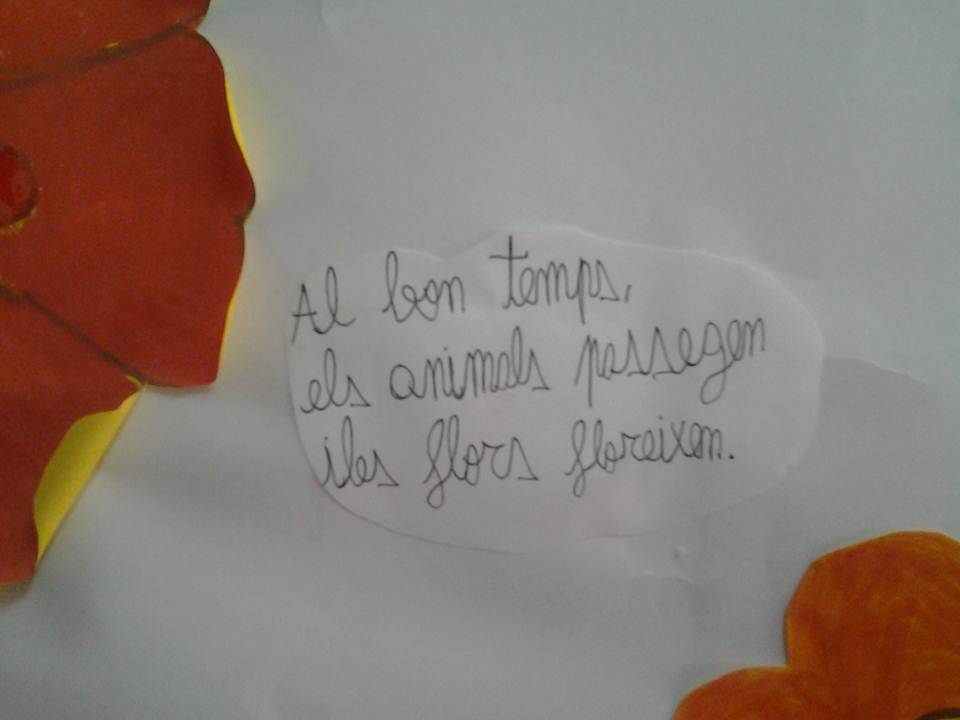 Al bon temps,
els animals passegen
i les flors floreixen.